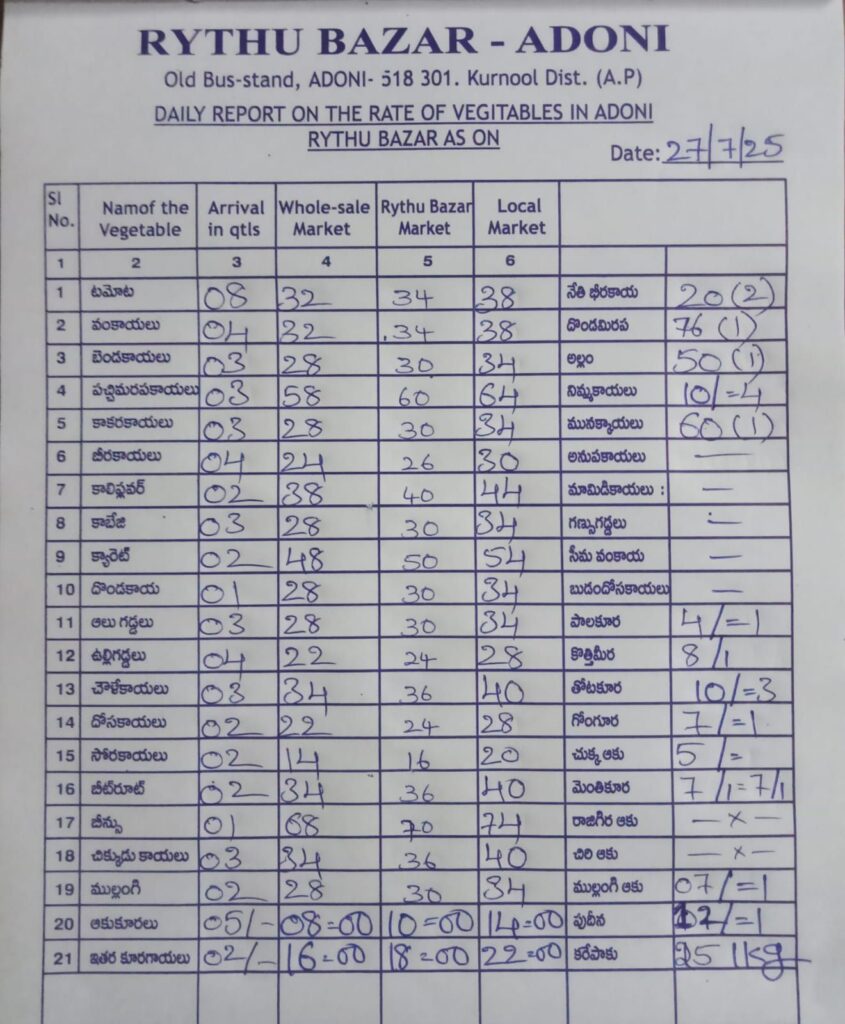 RYTHU BAZAR - ADONI
Old Bus-stand, ADONI- 518 301. Kurnool Dist. (A.P)
DAILY REPORT ON THE RATE OF VEGITABLES IN ADONI
RYTHU BAZAR AS ON
Date: 27/7/25
Sl No. Namof the Vegetable Arrival in qtls Whole-sale Market Rythu Bazar Market Local Market
1 2 3 4 5 6
1 టమోట 08 32 34 38 నేతి భీరకాయ 20 (2)
2 వంకాయలు 04 32 .34 38 దొండమిరప 76 (1)
3 బెండకాయలు 03 28 30 34 అల్లం 50 (1)
4 పచ్చిమిరపకాయలు 03 58 60 64 నిమ్మకాయలు 10/=4
5 కాకరకాయలు 03 28 30 34 మునక్కాయలు 60 (1)
6 బీరకాయలు 04 24 26 30 అనుపకాయలు —
7 కాలిఫ్లవర్ 02 38 40 44 మామిడికాయలు : —
8 కాబేజి 03 28 30 34 గణ్సుగడ్డలు —
9 క్యారెట్ 02 48 50 54 సీమ వంకాయ —
10 దొండకాయ 01 28 30 34 బుడందోసకాయలు —
11 ఆలు గడ్డలు 03 28 30 34 పాలకూర 4/=1
12 ఉల్లిగడ్డలు 04 22 24 28 కొత్తిమీర 8/1
13 చౌళేకాయలు 03 34 36 40 తోటకూర 10/=3
14 దోసకాయలు 02 22 24 28 గోంగూర 7/=1
15 సోరకాయలు 02 14 16 20 చుక్క ఆకు 5/=
16 బీట్‌రూట్ 02 34 36 40 మెంతికూర 7/1=7/1
17 బీన్సు 01 68 70 74 రాజిగీర ఆకు — x —
18 చిక్కుడు కాయలు 03 34 36 40 చిరి ఆకు — x —
19 ముల్లంగి 02 28 30 34 ముల్లంగి ఆకు 07/=1
20 ఆకుకూరలు 05/- 08=00 10=00 14=00 పుదీన /=1
21 ఇతర కూరగాయలు 02/- 16=00 18=00 22=00 కరేపాకు 25 1kg